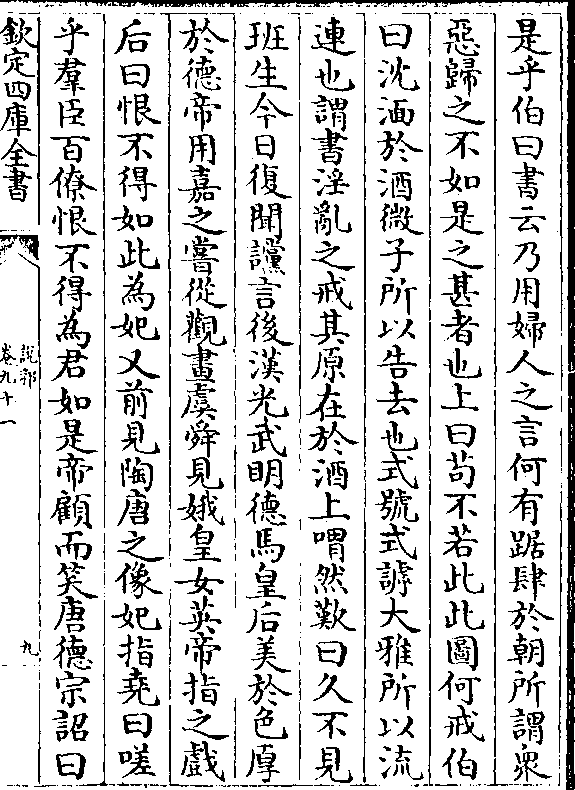 是乎伯曰書云乃用婦人之言何有踞肆於朝所謂衆
惡歸之不如是之甚者也上曰苟不若此此圖何戒伯
曰沈湎於酒微子所以告去也式號式謼大雅所以流
連也謂書淫亂之戒其原在於酒上喟然歎曰久不見
班生今日復聞讜言後漢光武明德馬皇后美於色厚
於德帝用嘉之嘗從觀畫虞舜見娥皇女英帝指之戲
后曰恨不得如此為妃又前見陶唐之像妃指堯曰嗟
乎羣臣百僚恨不得為君如是帝顧而笑唐德宗詔曰
欽定四庫全書
說郛
卷九十一
九